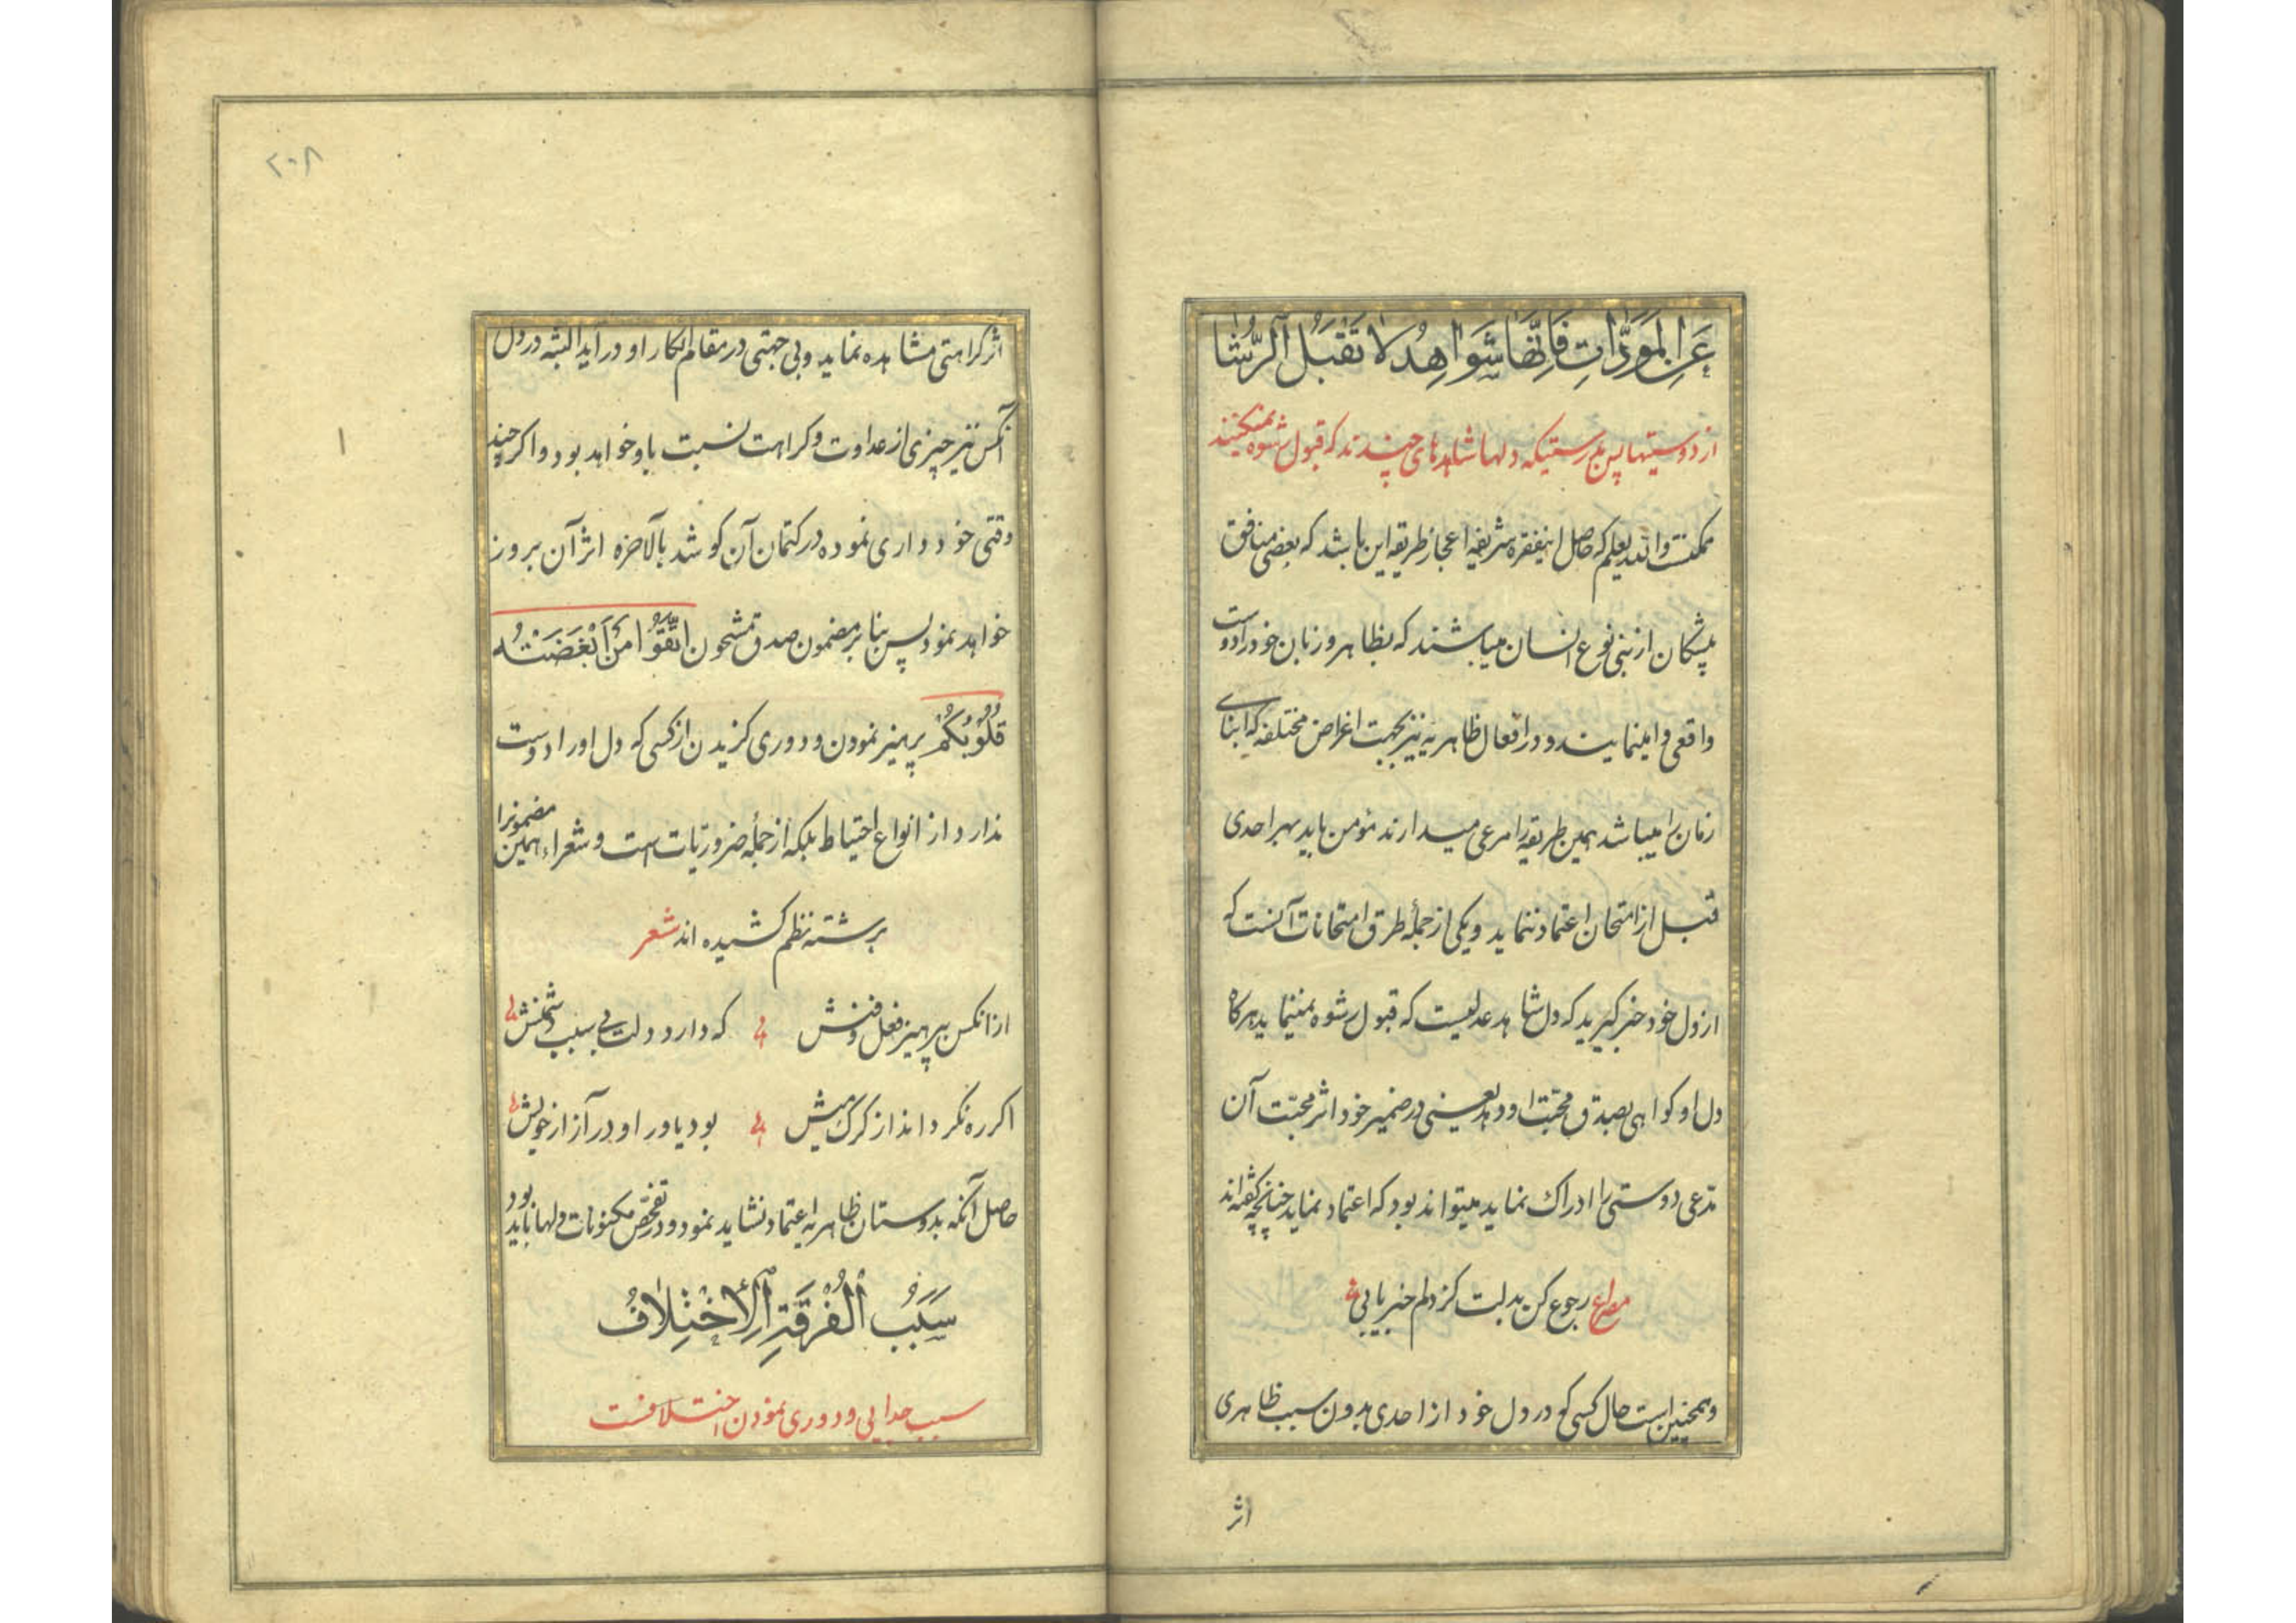 عَنِ الْمَوَدَّاتِ فَاِنَّهَا شَوَاهِدُ لَا تَقْبَلُ الرُّشَا
از دوستیها پس بدرستیکه دلها شاهدهای چندند که قبول رشوه نمیکنند
ممکنست والله یعلم که حاصل اینفقره شریفه اعجاز طریقه این باشد که بعضی منافق
پیشگان از بنی نوع انسان میباشند که بظاهر و زبان خود را دوست
واقعی وا مینمایند و در افعال ظاهریه نیز بجهت اغراض مختلفه که ابنای
زمان را میباشد همین طریقه را مرعی میدارند مؤمن باید بهر احدی
قبل از امتحان اعتماد ننماید و یکی از جمله طرق امتحانات آنست که
از دل خود خبر گیرید که دل شاهد عدلیست که قبول رشوه نمینماید هرگاه
دل او گواهی بصدق محبت او دهد یعنی در ضمیر خود اثر محبّت آن
مدّعی دوستی را ادراک نماید میتواند بود که اعتماد نماید چنانچه گفته‌اند
مصراع رجوع کن بدلت کز دلم خبر یابی
و همچنین است حال کسی که در دل خود از احدی بدون سبب ظاهری
اثر
۲۰۸
اثر کراهتی مشاهده نماید و بی جهتی در مقام انکار او درآید البته در دل
آنکس نیز چیزی از عداوت و کراهت نسبت باو خواهد بود و اگر چند
وقتی خود داری نموده در کتمان آن کوشد بالآخره اثر آن بروز
خواهد نمود پس بنا بر مضمون صدق مشحون اتَّقُوا مَنْ اَبْغَضَتْهُ
قُلُوبُكُمْ پرهیز نمودن و دوری گزیدن از کسی که دل او را دوست
ندارد از انواع احتیاط بلکه از جمله ضروریّات است و شعراء همین مضمونرا
برشته نظم کشیده اند شعر
ازانکس بپرهیز فعل و فنش که دارد دلت بی سبب دشمنش
اگر ره نگرداند از گرگ میش بود یاور او در آزار خویش
حاصل آنکه بدوستان ظاهریه اعتماد نشاید نمود و در تفحّص مکنونات دلها باید بود
سَبَبُ الْفُرْقَةِ الْاِخْتِلَافُ
سبب جدایی و دوری نمودن اختلافست